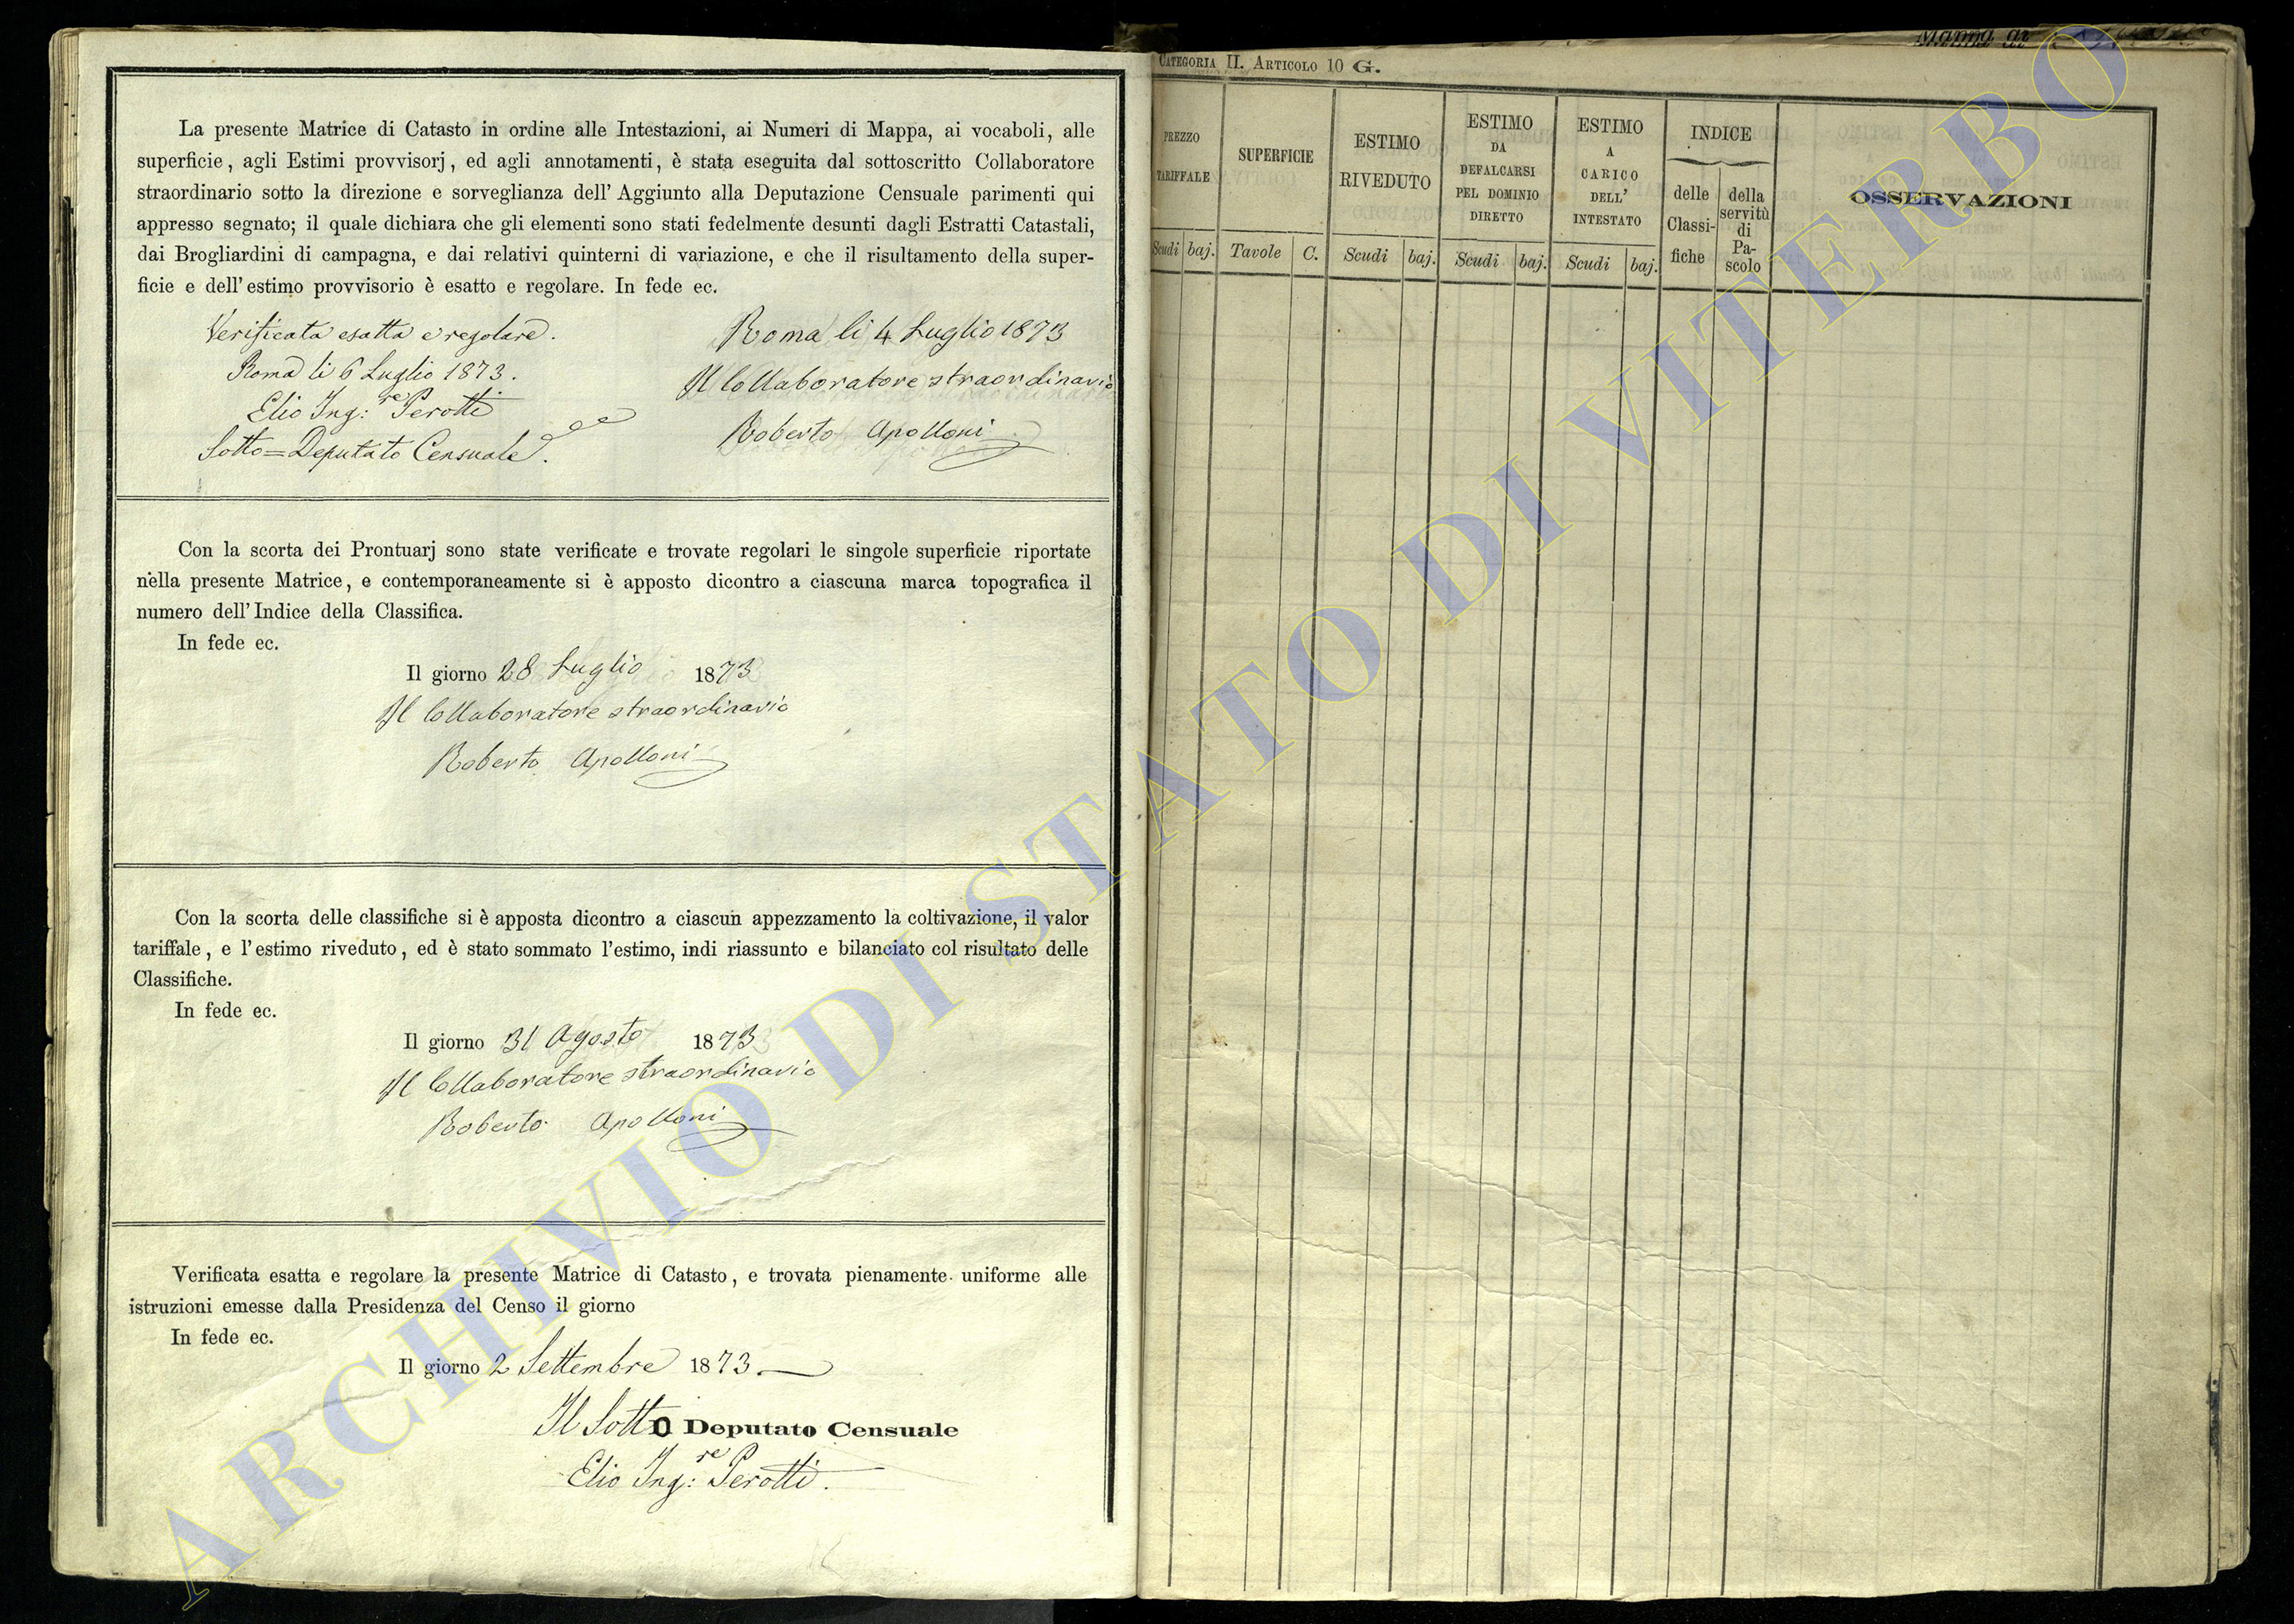 La presente Matrice di Catasto in ordine alle Intestazioni, ai Numeri di Mappa, ai vocaboli, alle
superficie, agli Estimi provvisorj, ed agli annotamenti, è stata eseguita dal sottoscritto Collaboratore
straordinario sotto la direzione e sorveglianza dell' Aggiunto alla Deputazione Censuale parimenti qui
appresso segnato; il quale dichiara che gli elementi sono stati fedelmente desunti dagli Estratti Catastali,
dai Brogliardini di campagna, e dai relativi quinterni di variazione, e che il risultamento della super-
ficie e dell' estimo provvisorio è esatto e regolare. In fede ec.
Verificata esatta e regolare.
Roma li 6 Luglio 1873.
Elio Ing:re Perotti
Sotto=Deputato Censuale.
Roma li 4 Luglio 1873
Il Collaboratore straordinario
Roberto Apolloni
Con la scorta dei Prontuarj sono state verificate e trovate regolari le singole superficie riportate
nella presente Matrice, e contemporaneamente si è apposto dicontro a ciascuna marca topografica il
numero dell' Indice della Classifica.
In fede ec.
Il giorno 28 Luglio 1873
Il Collaboratore straordinario
Roberto Apolloni
Con la scorta delle classifiche si è apposta dicontro a ciascun appezzamento la coltivazione, il valor
tariffale, e l'estimo riveduto, ed è stato sommato l'estimo, indi riassunto e bilanciato col risultato delle
Classifiche.
In fede ec.
Il giorno 31 Agosto 1873
Il Collaboratore straordinario
Roberto Apolloni
Verificata esatta e regolare la presente Matrice di Catasto, e trovata pienamente uniforme alle
istruzioni emesse dalla Presidenza del Censo il giorno
In fede ec.
Il giorno 2 Settembre 1873.
Il Sotto Deputato Censuale
Elio Ing:re Perotti.
CATEGORIA II. ARTICOLO 10 G.
PREZZO
TARIFFALE
Scudi baj.
SUPERFICIE
Tavole C.
ESTIMO
RIVEDUTO
Scudi baj.
ESTIMO
DA
DEFALCARSI
PEL DOMINIO
DIRETTO
Scudi baj.
ESTIMO
A
CARICO
DELL'
INTESTATO
Scudi baj.
INDICE
delle
Classi-
fiche
della
servitù
di
Pa-
scolo
OSSERVAZIONI
ARCHIVIO DI STATO DI VITERBO